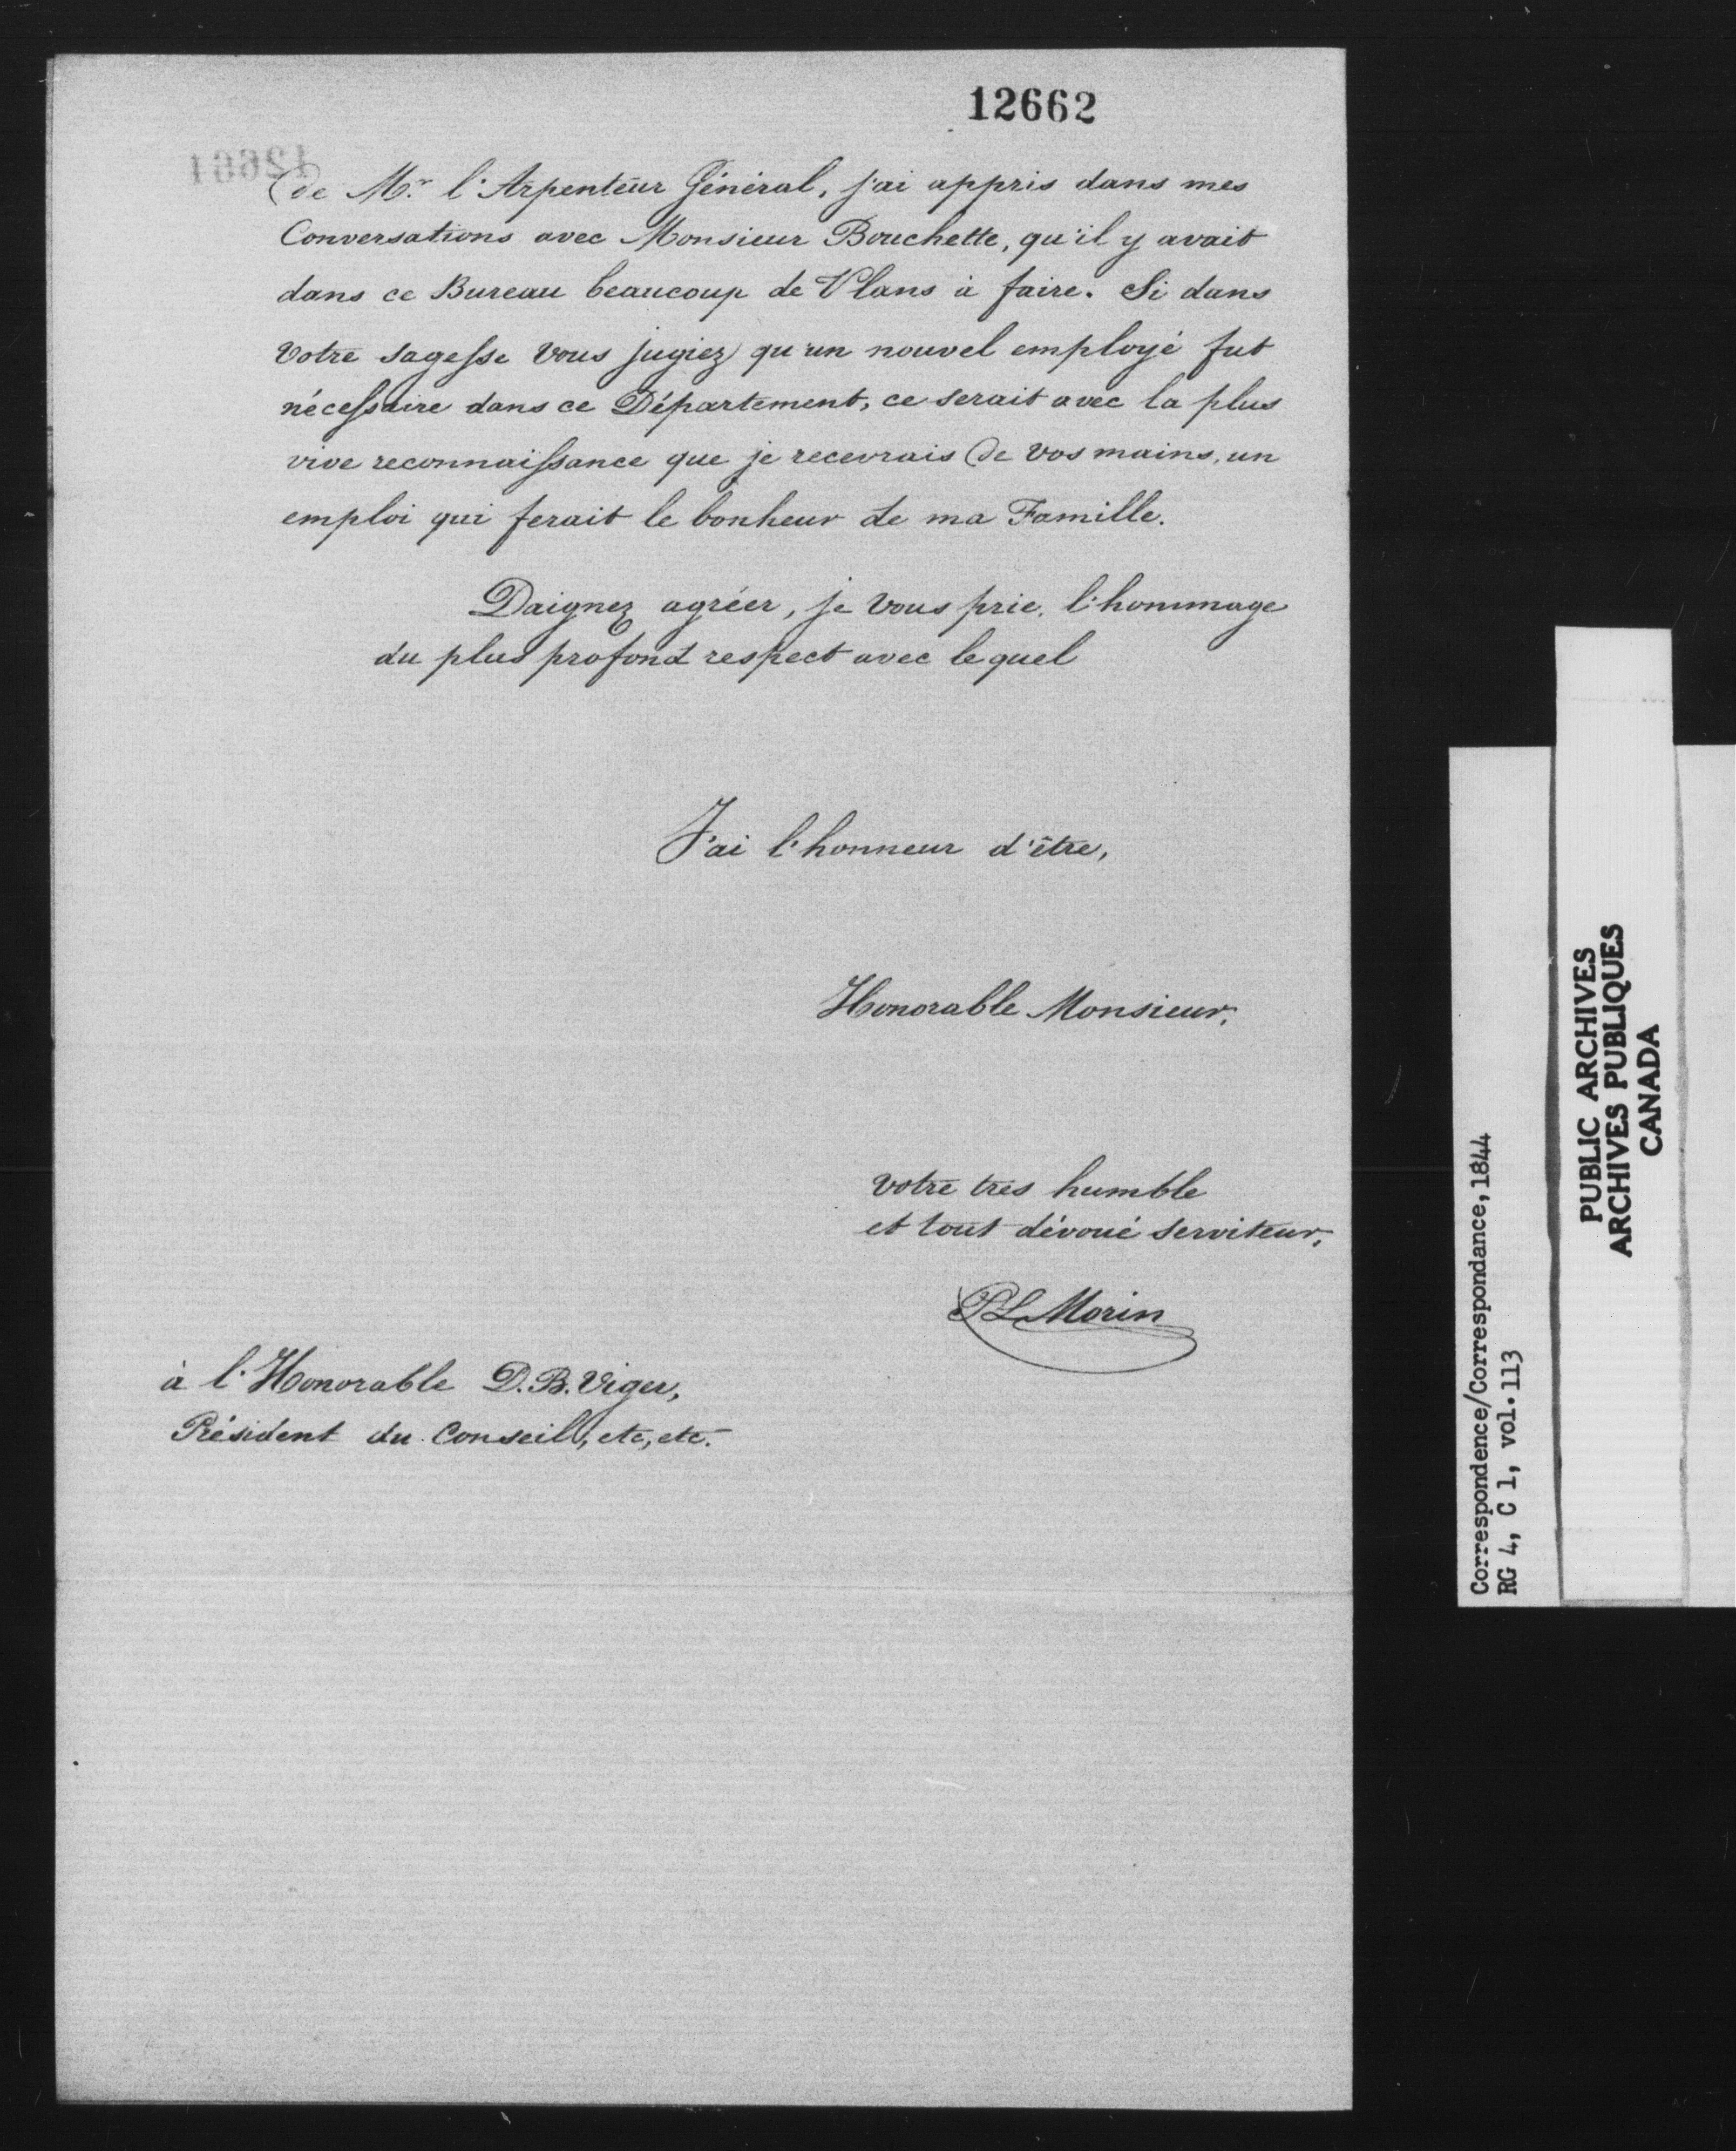 12662
12661
de Mr. l'Arpenteur Général, j'ai appris dans mes
Conversations avec Monsieur Bouchette, qu'il y avait
dans ce Bureau beaucoup de Plans à faire. Si dans
Votre sagesse Vous jugiez qu'un nouvel employé fut
nécessaire dans ce Département, ce serait avec la plus
vive reconnaissance que je recevrais de Vos mains, un
emploi qui ferait le bonheur de ma Famille.
Daignez agréer, je Vous prie, l'hommage
du plus profond respect avec lequel
J'ai l'honneur d'être,
Honorable Monsieur,
Votre très humble
et tout dévoué Serviteur,
PL Morin
à l'Honorable D. B. Viger,
Président du Conseil, etc, etc.
Correspondence/Correspondance, 1844
RG 4, C 1, vol. 113
PUBLIC ARCHIVES
ARCHIVES PUBLIQUES
CANADA